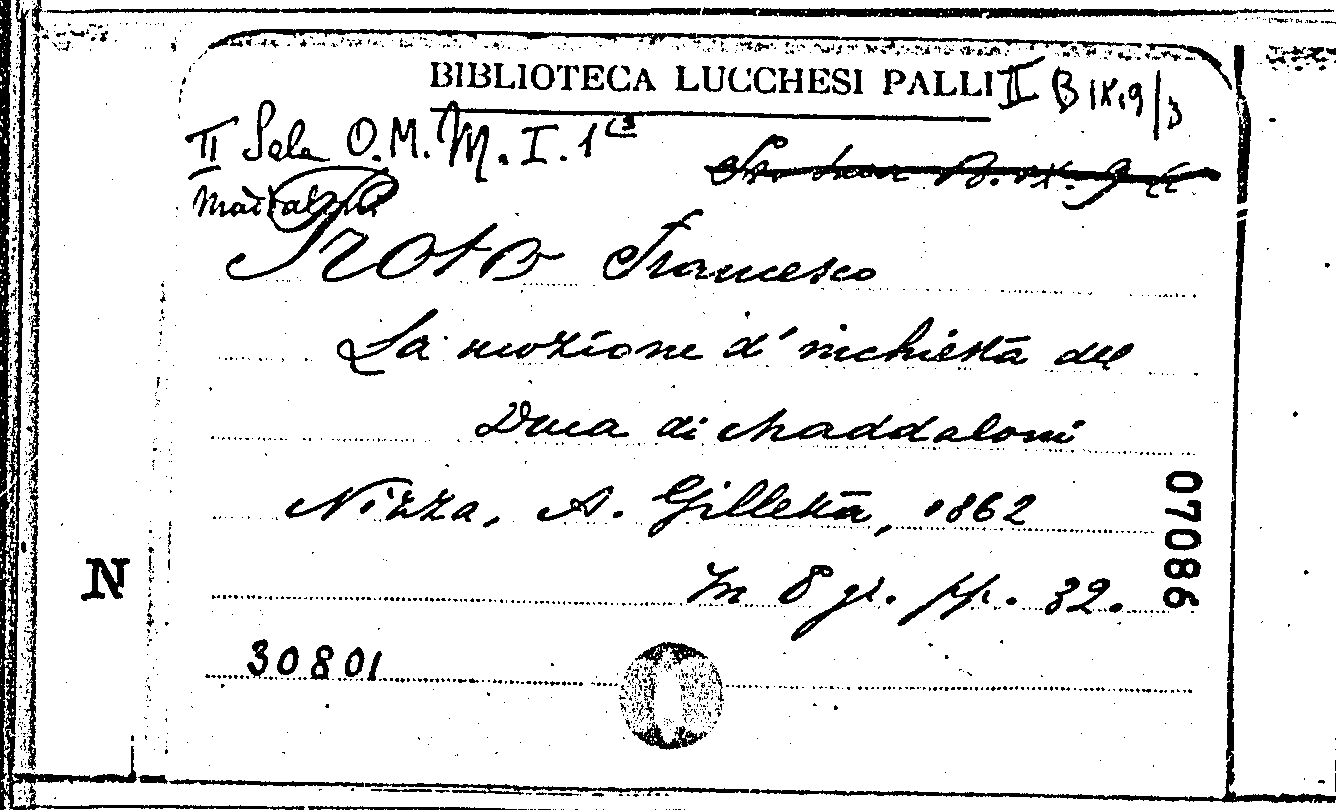 BIBLIOTECA LUCCHESI PALLI II B IX.9/3
II Sala O.M. M. I. 1
Proto Francesco
La mozione d'inchiesta del
Duca di Maddaloni
Nizza, A. Gilletta, 1862
In 8 gr. pp. 32.
07086
N
30801